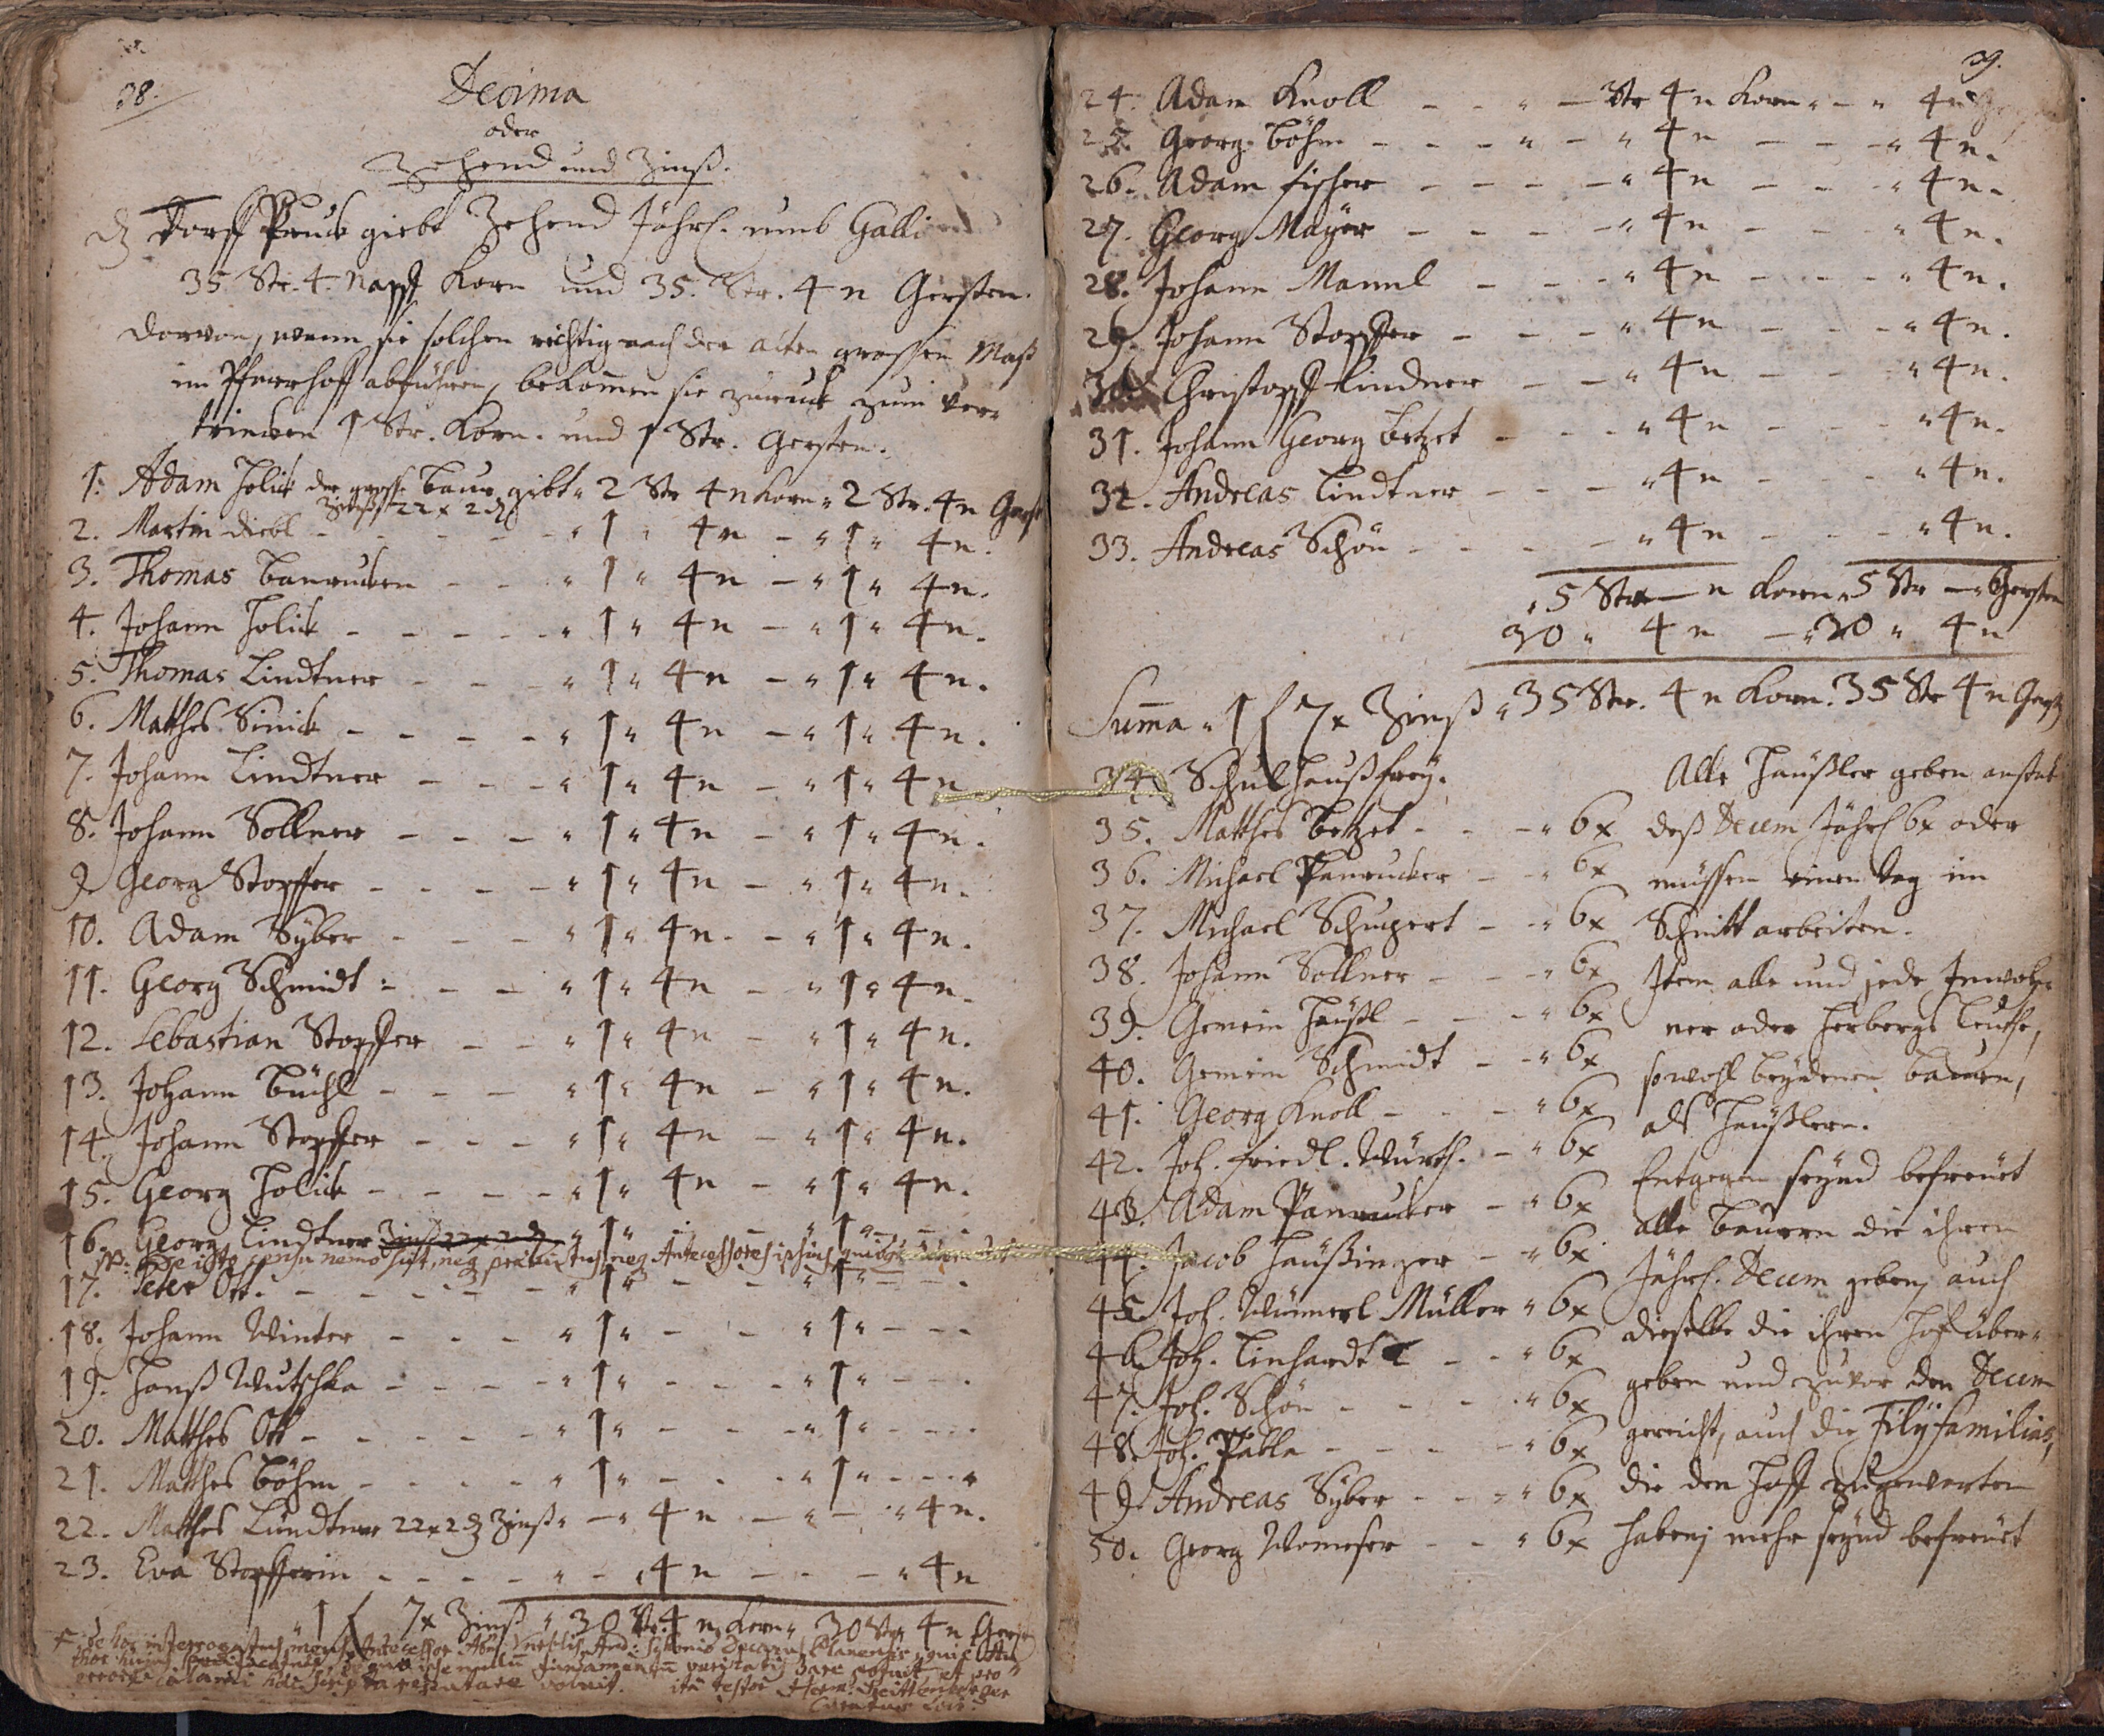 38.
Decima
oder
Zehend und Zinß.
Dz Dorff Pruk giebt Zehend Jährl. umb Galli
35 Str. 4. Napf Korn und 35. Str. 4 n Gersten.
Dorvon, wenn sie solchen richtig nach der alten grossen Maß
im Pfarrhoff abführen, bekommen sie zuruck zum ver-
trincken 1 Str. Korn. und 1 Str. Gersten.
1. Adam Holick der grosse Baur gibt " 2 Str 4 n Korn " 2 Str. 4 n Gerst
Zinßt 22 x 2 ₰
2. Martin Diebl - - - " 1 " 4 n - " 1 " 4 n.
3. Thomas Banrucker - - " 1 " 4 n - " 1 " 4 n.
4. Johann Holick - - - " 1 " 4 n - " 1 " 4 n.
5. Thomas Lindtner - - - " 1 " 4 n - " 1 " 4 n.
6. Matthes Sinick - - - - " 1 " 4 n - " 1 " 4 n.
7. Johann Lindtner - - - " 1 " 4 n - " 1 " 4 n
8. Johann Sollner - - - " 1 " 4 n - " 1 " 4 n.
9. Georg Stopffer - - - - " 1 " 4 n - " 1 " 4 n.
10. Adam Syber - - - " 1 " 4 n. - " 1 " 4 n.
11. Georg Schmidt - - - " 1 " 4 n - " 1 " 4 n.
12. Sebastian Stopffer - - " 1 " 4 n - " 1 " 4 n.
13. Johann Büchl - - - " 1 " 4 n - " 1 " 4 n.
14. Johann Stopffer - - - " 1 " 4 n - " 1 " 4 n.
15. Georg Holick - - - - " 1 " 4 n - " 1 " 4 n.
16. Georg Lindtner Zinß 22 x 2 ₰ " 1 " - - " 1 " - -
De isto censu nemo scit, neq praesentes neq Antecessores ipsius
17. Peter Ott. - - - - - " 1 " - - " 1 " - -
18. Johann Winter - - - " 1 " - - " 1 " - - -
19. Hanß Wutschka - - - - " 1 " - - - " 1 " - - -
20. Matthes Ott - - - - - " 1 " - - - " 1 " - - -
21. Matthes Böhm - - - - " 1 " - - - " 1 " - - -
22. Matthes Lundtner 22 x 2 ₰ Zinß " - " 4 n - " - " 4 n.
23. Eva Stopfferin - - - - " - " 4 n - - - " 4 n
" 1 f 7 x Zinß " 30 Str. 4 n Korn " 30 Str. 4 n Gerst
de hoc interrogatus meus Antecessor
ita testor
39.
24. Adam Knoll - - " - Str 4 n Korn " - " 4 n
25. Georg Böhm - - - " - " 4 n - - - " 4 n.
26. Adam Fischer - - - - " 4 n - - " 4 n.
27. Georg Mayer - - - - " 4 n - - " 4 n.
28. Johann Mannl - - - " 4 n - - - " 4 n.
29. Johann Stopffer - - - " 4 n - - - " 4 n.
30. Christoph Lindner - - " 4 n - - " 4 n.
31. Johann Georg Betzet - - - " 4 n - - - " 4 n.
32. Andreas Lindtner - - - " 4 n - - - " 4 n.
33. Andreas Schön - - - - " 4 n - - - " 4 n.
" 5 Str - n Korn " 5 Str - " Gersten
30 " 4 n - " 30 " 4 n
Summa " 1 f 7 x Zinß " 35 Str. 4 n Korn. 35 Str 4 n Gerst
34. Schulhauß frey.
35. Matthes Betzet - - - " 6 x
36. Michael Panrucker - - " 6 x
37. Michael Schupert - - " 6 x
38. Johann Sollner - - - " 6 x
39. Gemein Häußl - - - " 6 x
40. Gemein Schmidt - - " 6 x
41. Georg Knoll - - - " 6 x
42. Joh. Friedl. Würth. - " 6 x
43. Adam Panrucker - " 6 x
44. Jacob Haußinger - - " 6 x
45. Joh. Wümerl Müller " 6 x
46. Joh. Linhardt - - " 6 x
47. Joh. Schön - - - " 6 x
48. Joh. Pabla - - - - " 6 x
49. Andreas Syber - - - " 6 x
50. Georg Womeser - - " 6 x
Alle Häußler geben anstat
deß Decem Jährl 6 x oder
müssen einen tag im
Schnitt arbeiten.
Item alle und jede Inwoh-
ner oder Herbergs Leuthe,
sowohl bey denen Bauern,
als Häußlern.
Entgegen seynd befreüet
alle Bauern die ihren
Jährl. Decem geben, auch
dieselbe die ihren Hof über-
geben und zuvor den Decem
gereicht, auch die Filij familias,
die den Hoff zugewarten
haben, mehr seynd befreüet